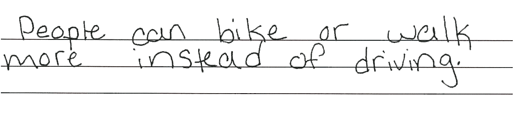 People can bike or walk
more instead of driving.